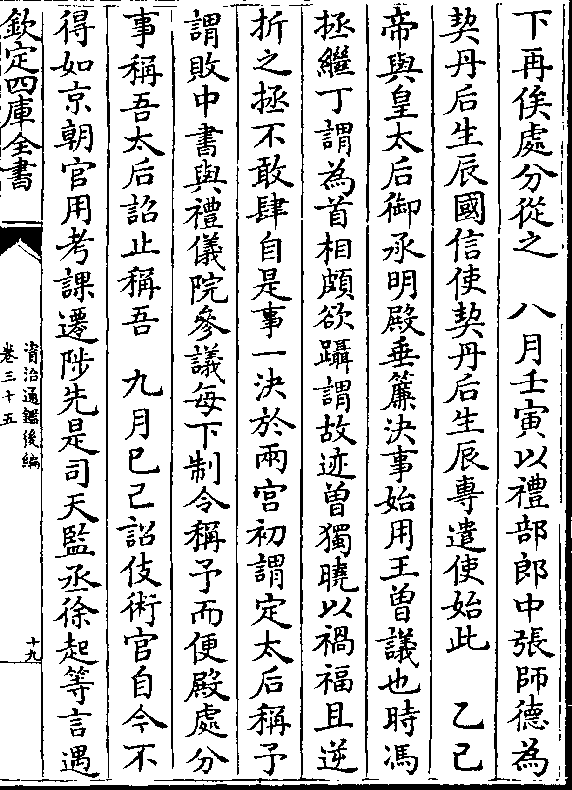 下再俟處分從之　八月壬寅以禮部郎中張師德為
契丹后生辰國信使契丹后生辰專遣使始此　乙巳
帝與皇太后御承明殿垂簾決事始用王曾議也時馮
拯繼丁謂為首相頗欲躡謂故迹曾獨曉以禍福且逆
折之拯不敢肆自是事一決於兩宮初謂定太后稱予
謂敗中書與禮儀院參議每下制令稱予而便殿處分
事稱吾太后詔止稱吾　九月己巳詔伎術官自今不
得如京朝官用考課遷陟先是司天監丞徐起等言遇
欽定四庫全書
資治通鑑後編
卷三十五
十九